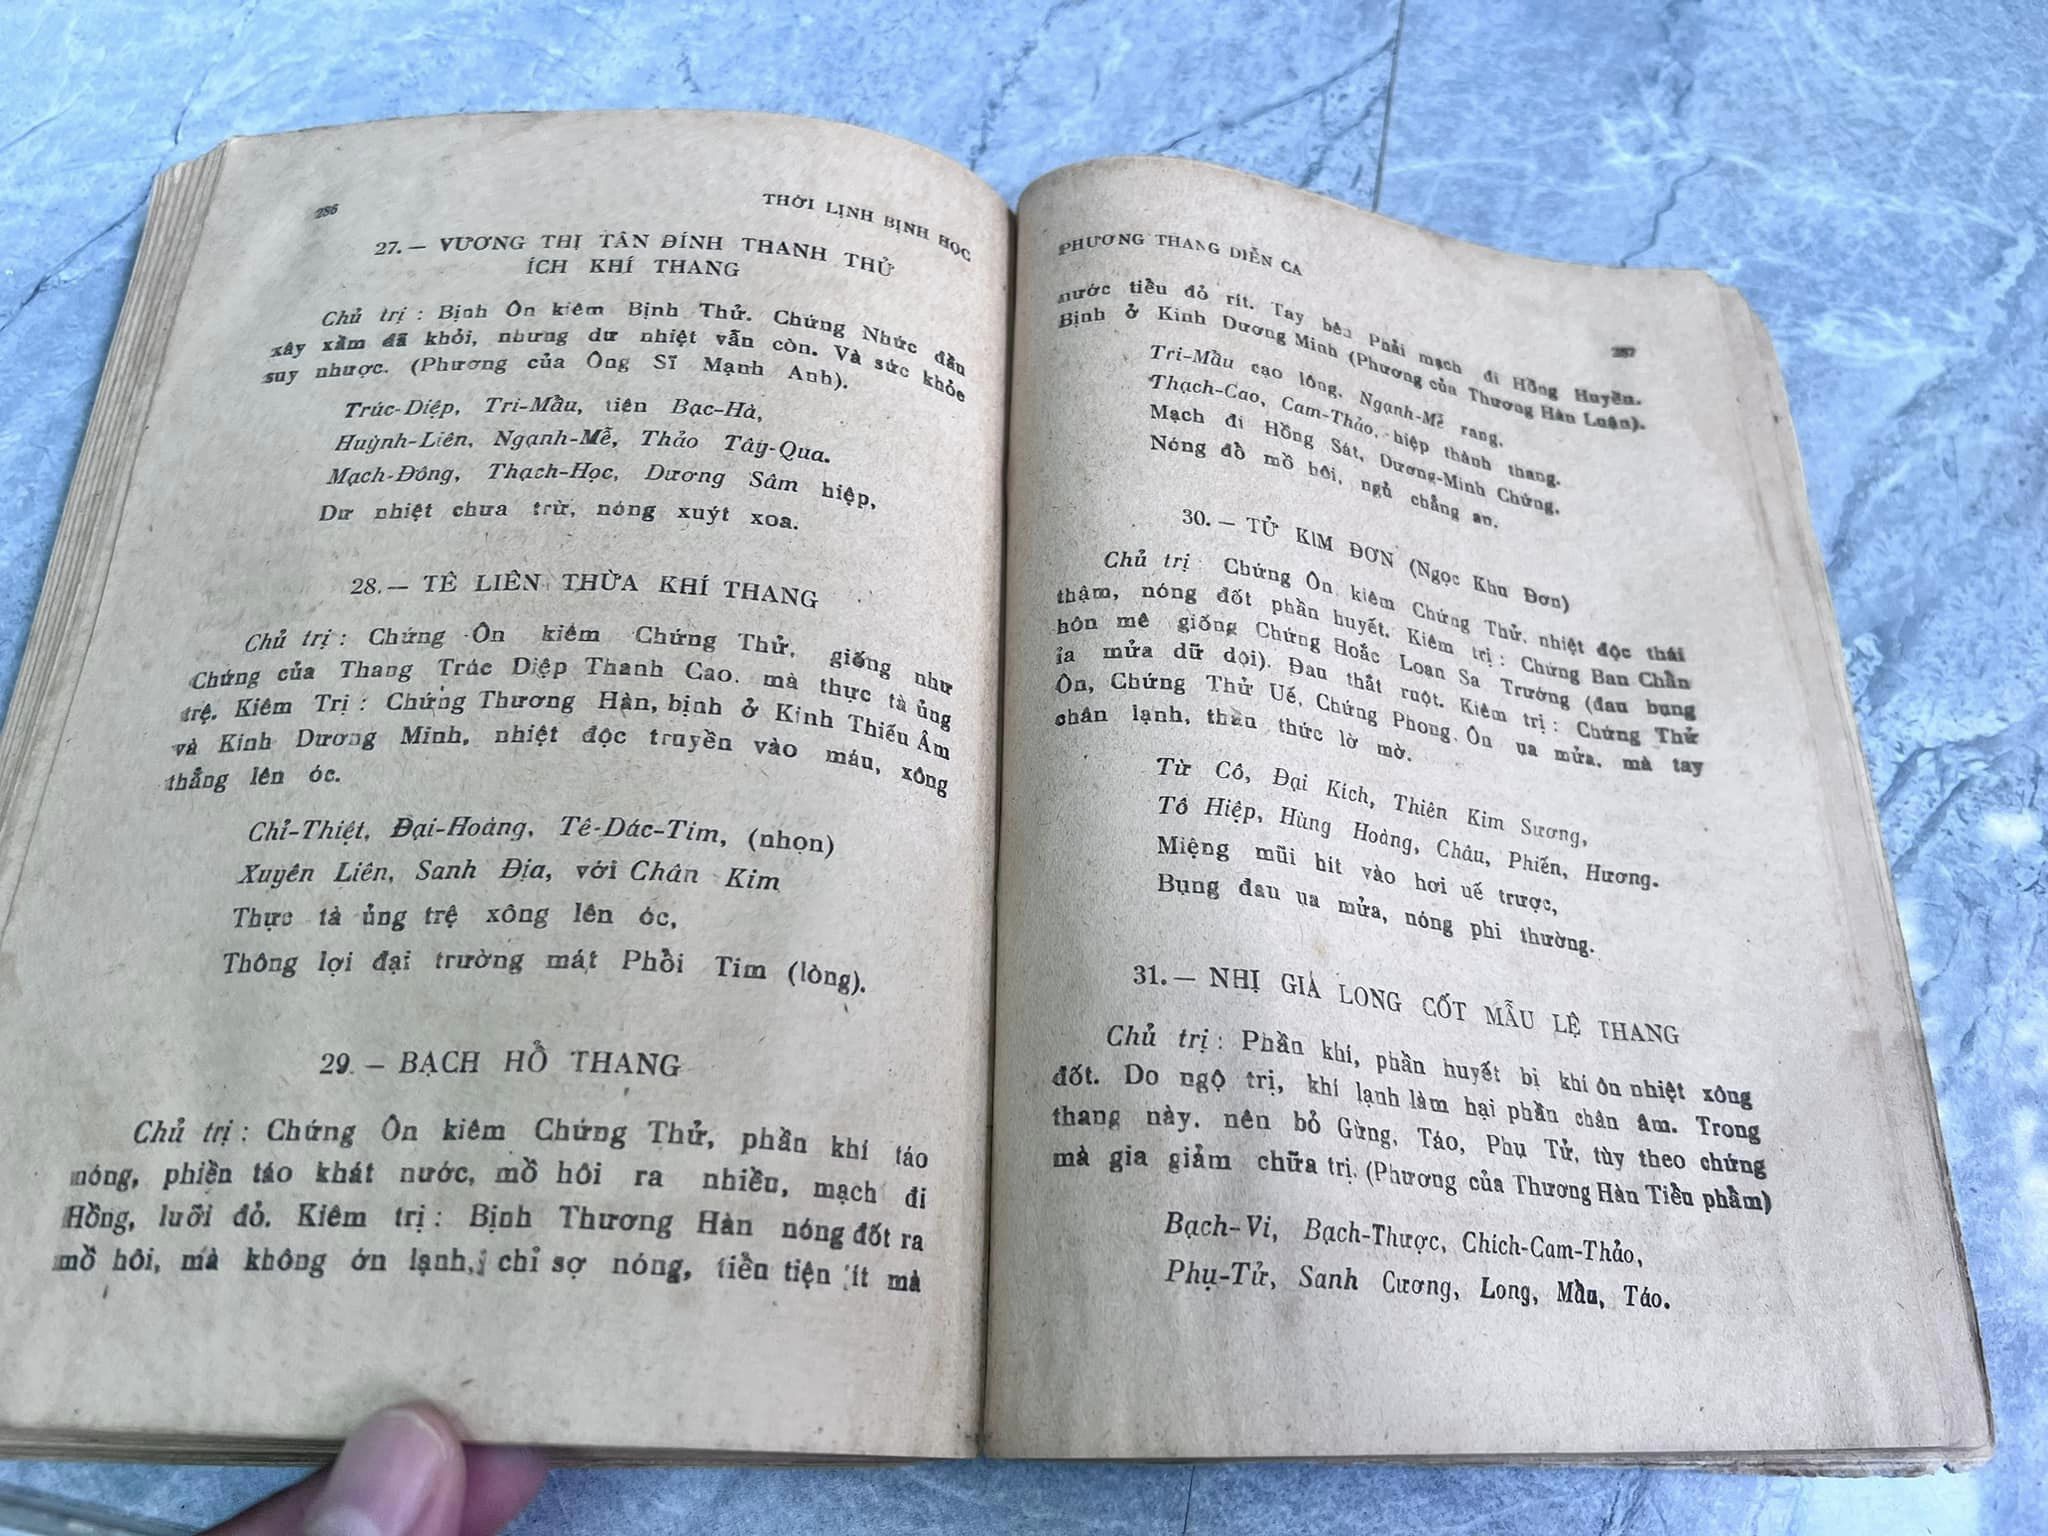 286
THỜI LỊNH BỊNH HỌC
27. — VƯƠNG THỊ TÂN ĐÍNH THANH THỬ
ÍCH KHÍ THANG
Chủ trị : Bịnh Ôn kiêm Bịnh Thử. Chứng Nhức đầu
xây xầm đã khỏi, nhưng dư nhiệt vẫn còn. Và sức khỏe
suy nhược. (Phương của Ông Sĩ Mạnh Anh).
Trúc-Diệp, Tri-Mẫu, tiên Bạc-Hà,
Huỳnh-Liên, Ngạnh-Mễ, Thảo Tây-Qua.
Mạch-Đông, Thạch-Học, Dương Sâm hiệp,
Dư nhiệt chưa trừ, nóng xuýt xoa.
28. — TÊ LIÊN THỪA KHÍ THANG
Chủ trị : Chứng Ôn kiêm Chứng Thử, giống như
Chứng của Thang Trúc Diệp Thanh Cao. mà thực tà ủng
trệ. Kiêm Trị : Chứng Thương Hàn, bịnh ở Kinh Thiếu Âm
và Kinh Dương Minh, nhiệt độc truyền vào máu, xông
thẳng lên óc.
Chỉ-Thiệt, Đại-Hoàng, Tê-Dác-Tim, (nhọn)
Xuyên Liên, Sanh Địa, với Chân Kim
Thực tà ủng trệ xông lên óc,
Thông lợi đại trường mát Phổi Tim (lòng).
29. — BẠCH HỔ THANG
Chủ trị : Chứng Ôn kiêm Chứng Thử, phần khí táo
nóng, phiền táo khát nước, mồ hôi ra nhiều, mạch đi
Hồng, lưỡi đỏ. Kiêm trị : Bịnh Thương Hàn nóng đốt ra
mồ hôi, mà không ớn lạnh, chỉ sợ nóng, tiền tiện ít mà
PHƯƠNG THANG DIỄN CA
287
nước tiểu đỏ rít. Tay bên Phải mạch đi Hồng Huyền.
Bịnh ở Kinh Dương Minh (Phương của Thương Hàn Luận).
Tri-Mẫu cạo lông, Ngạnh-Mễ rang,
Thạch-Cao, Cam-Thảo, hiệp thành thang.
Mạch đi Hồng Sát, Dương-Minh Chứng,
Nóng đổ mồ hôi, ngủ chẳng an.
30. — TỬ KIM ĐƠN (Ngọc Khu Đơn)
Chủ trị : Chứng Ôn kiêm Chứng Thử, nhiệt độc thái
thậm, nóng đốt phần huyết. Kiêm trị : Chứng Ban Chẩn
hôn mê giống Chứng Hoắc Loạn Sa Trướng (đau bụng
ỉa mửa dữ dội). Đau thắt ruột. Kiêm trị : Chứng Thử
Ôn, Chứng Thử Uế, Chứng Phong Ôn ụa mửa, mà tay
chân lạnh, thần thức lờ mờ.
Từ Cô, Đại Kích, Thiên Kim Sương,
Tô Hiệp, Hùng Hoàng, Châu, Phiến, Hương.
Miệng mũi hít vào hơi uế trược,
Bụng đau ụa mửa, nóng phi thường.
31. — NHỊ GIA LONG CỐT MẪU LỆ THANG
Chủ trị : Phần khí, phần huyết bị khí ôn nhiệt xông
đốt. Do ngộ trị, khí lạnh làm hại phần chân âm. Trong
thang này. nên bỏ Gừng, Táo, Phụ Tử, tùy theo chứng
mà gia giảm chữa trị. (Phương của Thương Hàn Tiền phầm)
Bạch-Vi, Bạch-Thược, Chích-Cam-Thảo,
Phụ-Tử, Sanh Cương, Long, Mẫu, Táo.